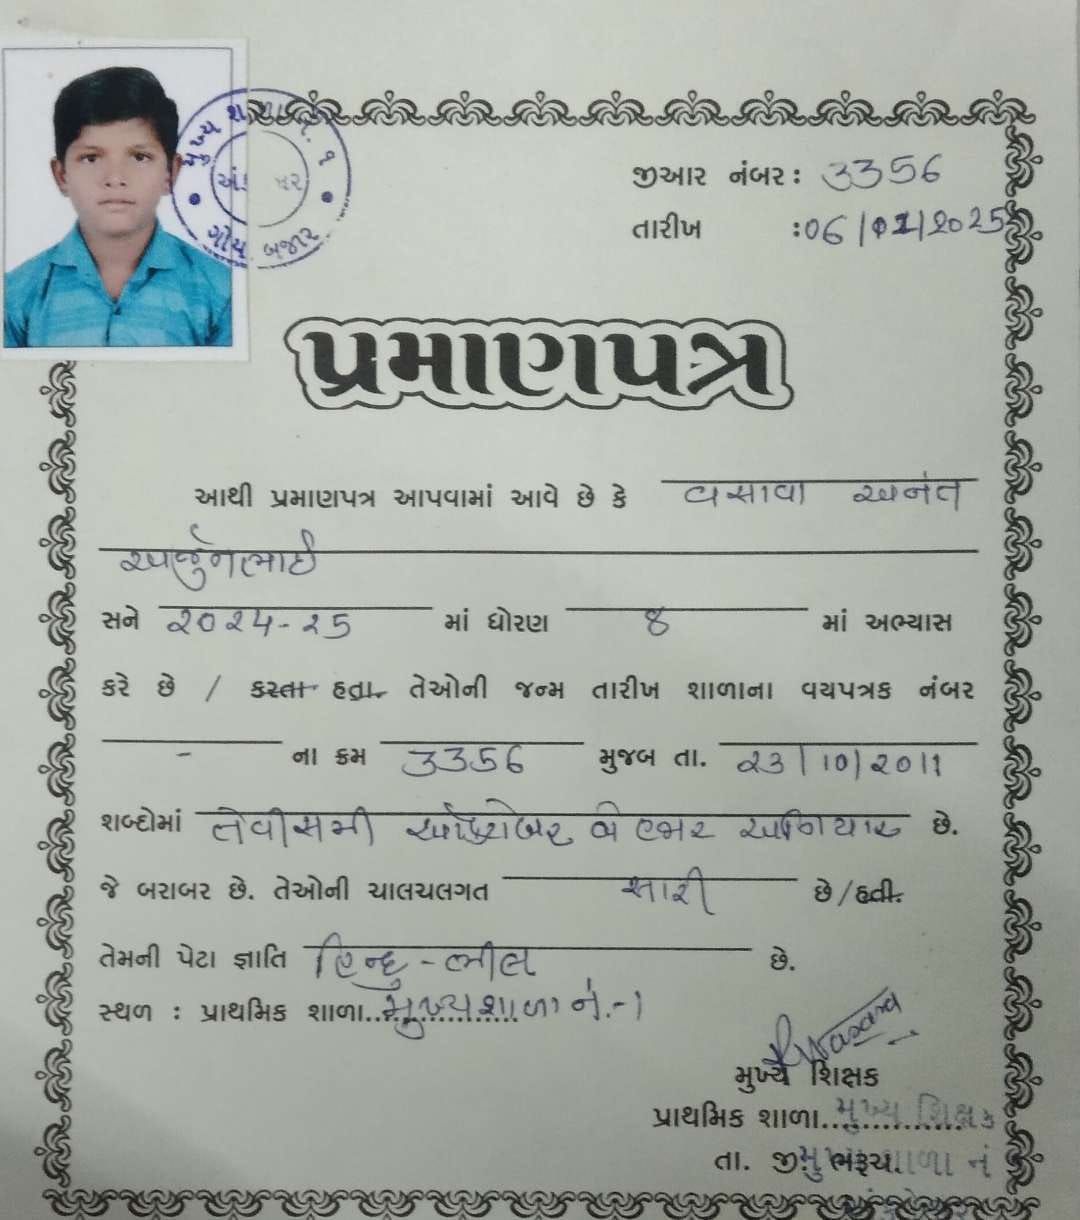 મુખ્ય શાળા નં. ૧
ગોયા બજાર
જીઆર નંબર : 3356
તારીખ : 06/01/2025
પ્રમાણપત્ર
આથી પ્રમાણપત્ર આપવામાં આવે છે કે વસાવા અનંત
અર્જુનભાઈ
સને ૨૦૨૪-૨૫ માં ધોરણ ૪ માં અભ્યાસ
કરે છે / કરતા હતા તેઓની જન્મ તારીખ શાળાના વયપત્રક નંબર
- ના ક્રમ 3356 મુજબ તા. ૨૩/૧૦/૨૦૧૧
શબ્દોમાં તેવીસમી ઓક્ટોબર બે હજાર અગિયાર છે.
જે બરાબર છે. તેઓની ચાલચલગત સારી છે/હતી.
તેમની પેટા જ્ઞાતિ હિન્દુ - ભીલ છે.
સ્થળ : પ્રાથમિક શાળા..મુખ્યશાળા નં.-૧
મુખ્ય શિક્ષક
પ્રાથમિક શાળા મુખ્ય શિક્ષક
તા. જી. ભરૂચ. શાળા નં